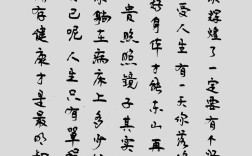 辉煌了一定要有个
受人生有一天你落
好身体才能东山再
貴照照鏡子其實
躺在病床上多少
己呢人生只有單程
存健康才是最明